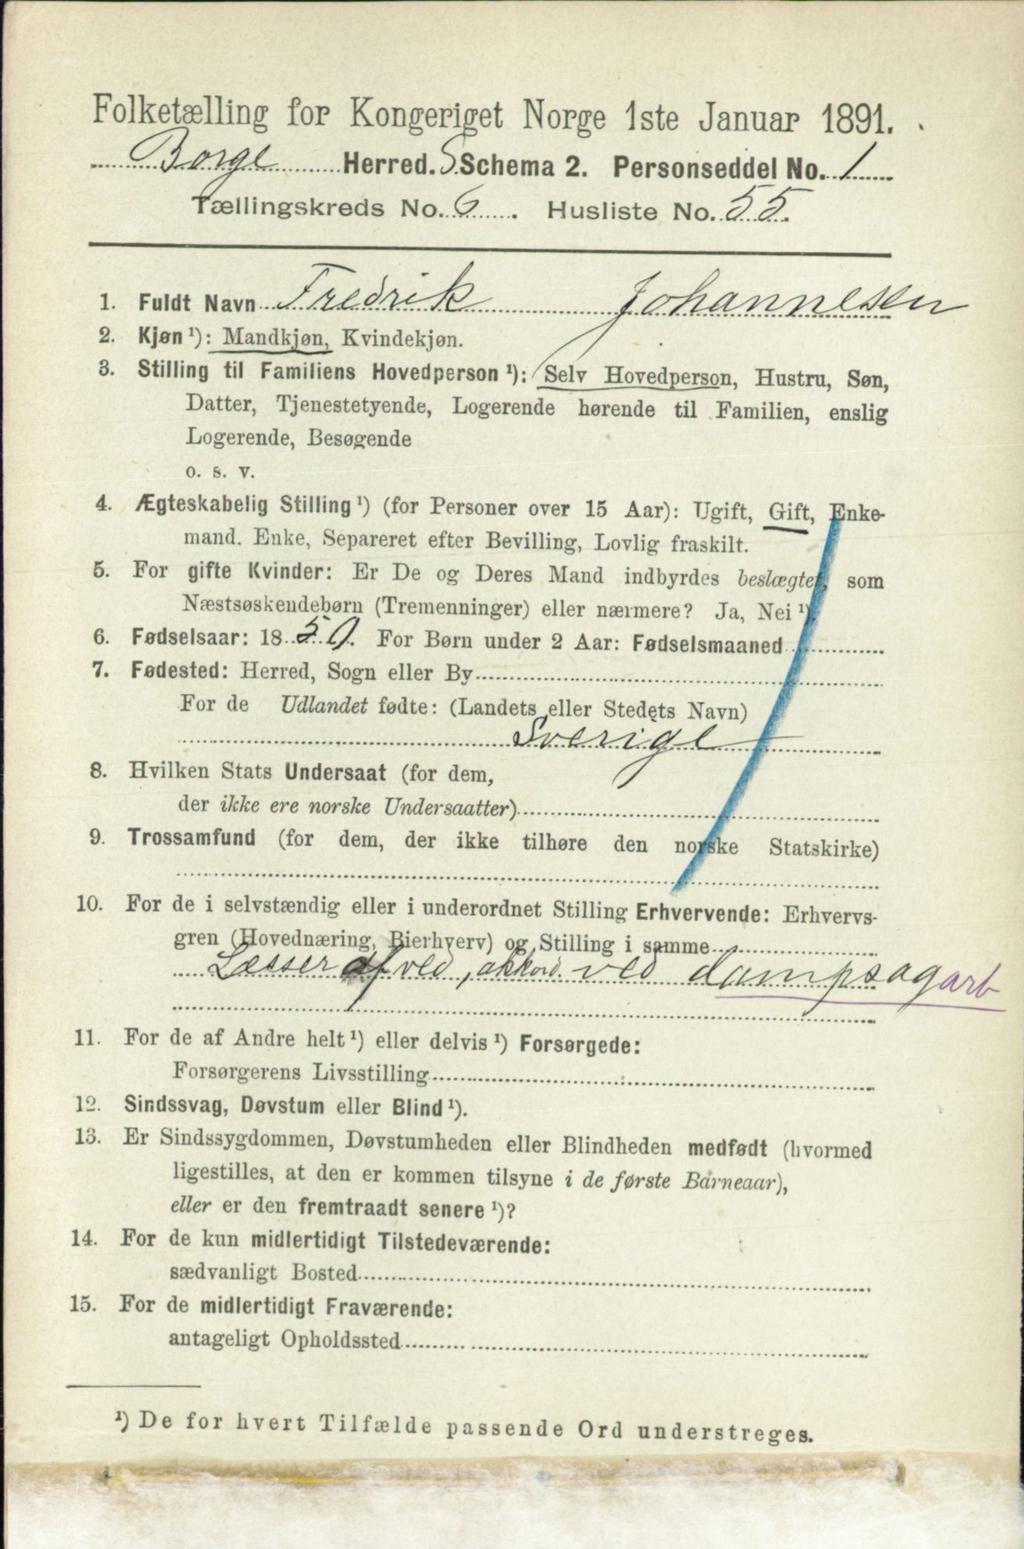 Folketælling for Kongeriget Norge 1ste Januar 1891.
Borge Herred. S. Schema 2. Personseddel No. 1
Tællingskreds No. 6. Husliste No. 55.
1. Fuldt Navn Fredrik Johannesen
2. Kjøn ¹): Mandkjøn, Kvindekjøn.
3. Stilling til Familiens Hovedperson ¹): Selv Hovedperson, Hustru, Søn,
Datter, Tjenestetyende, Logerende hørende til Familien, enslig
Logerende, Besøgende
o. s. v.
4. Ægteskabelig Stilling ¹) (for Personer over 15 Aar): Ugift, Gift, Enke-
mand, Enke, Separeret efter Bevilling, Lovlig fraskilt.
5. For gifte Kvinder: Er De og Deres Mand indbyrdes beslægtet, som
Næstsøskendebørn (Tremenninger) eller nærmere? Ja, Nei ¹).
6. Fødselsaar: 1850. For Børn under 2 Aar: Fødselsmaaned
7. Fødested: Herred, Sogn eller By
For de Udlandet fødte: (Landets eller Stedets Navn)
Sverige
8. Hvilken Stats Undersaat (for dem,
der ikke ere norske Undersaatter)
9. Trossamfund (for dem, der ikke tilhøre den norske Statskirke)
10. For de i selvstændig eller i underordnet Stilling Erhvervende: Erhvervs-
gren (Hovednæring, Bierhverv) og Stilling i samme
Læsser af ved, akkord. ved dampsag arb
11. For de af Andre helt ¹) eller delvis ¹) Forsørgede:
Forsørgerens Livsstilling
12. Sindssvag, Døvstum eller Blind ¹).
13. Er Sindssygdommen, Døvstumheden eller Blindheden medfødt (hvormed
ligestilles, at den er kommen tilsyne i de første Barneaar),
eller er den fremtraadt senere ¹)?
14. For de kun midlertidigt Tilstedeværende:
sædvanligt Bosted
15. For de midlertidigt Fraværende:
antageligt Opholdssted
¹) De for hvert Tilfælde passende Ord understreges.